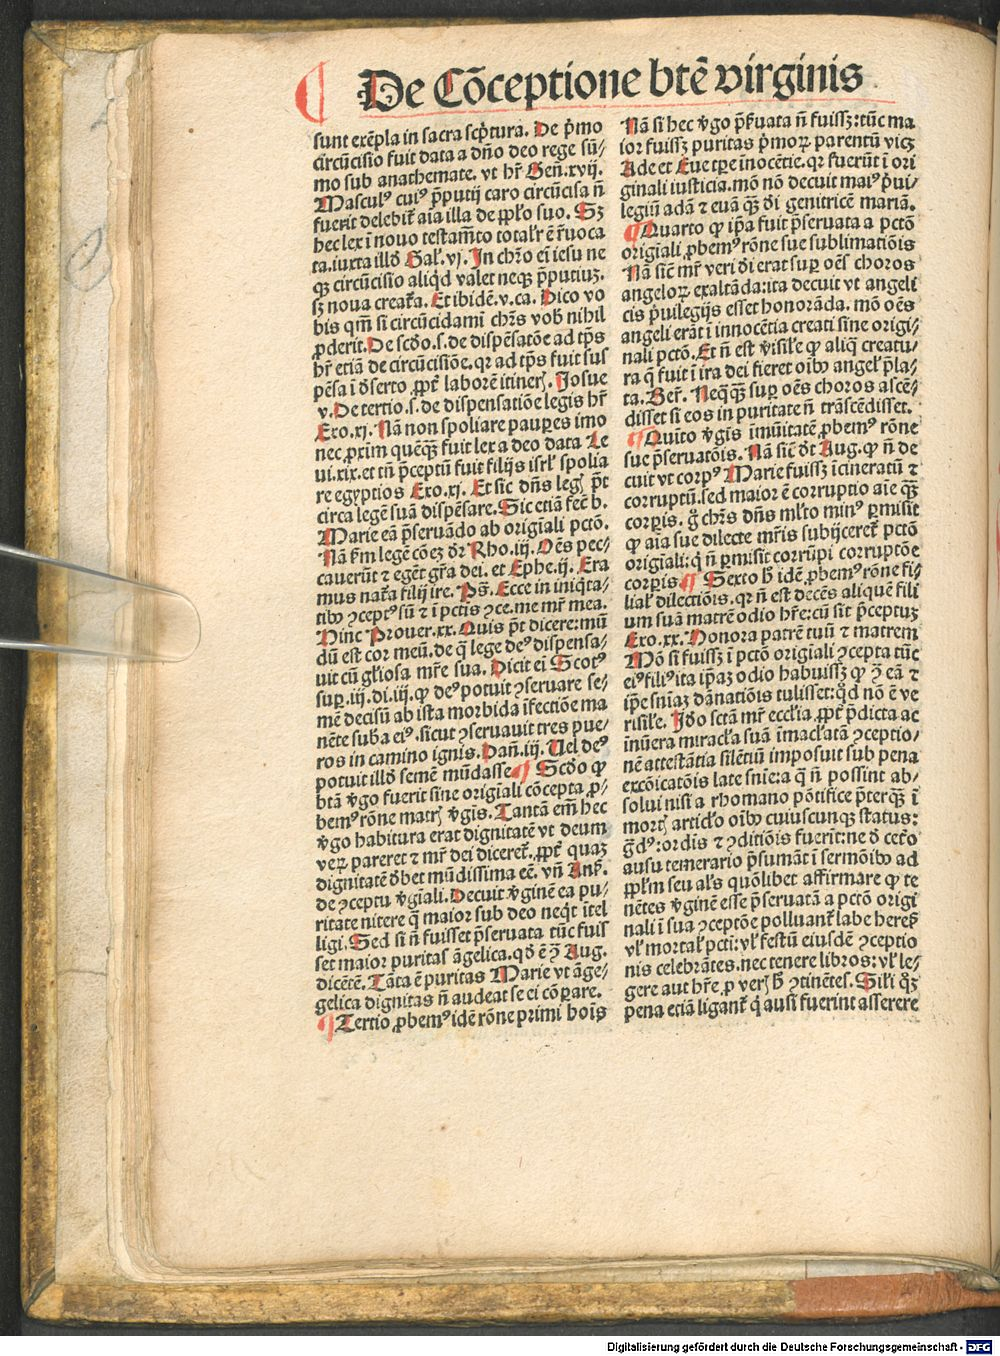 De Cōceptione btē virginis
sunt exēpla in sacra scp̄tura. De p̄mo
circūcisio fuit data a dn̄o deo rege sū⸗
mo sub anathemate. vt hr̄ Gen̄.xvij.
Masculꝰ cuiꝰ p̄putij caro circūcisa n̄
fuerit delebit̄ aīa illa de ppl̄o suo. Sꝫ
hec lex ī nouo testam̄to totalr̄ ē r̄uoca
ta.iuxta illd̄ Gal̄.vj. In chr̄o em̄ iesu ne
qꝫ circūcisio aliqd̄ valet neqꝫ p̄putiuꝫ.
sꝫ noua creat̄a. Et ibidē.v.ca. Dico vo
bis qm̄ si circūcidamī chr̄s vob̄ nihil
ꝓderit. De scd̄o.s.de dispēsatōe ad tp̄s
hr̄ etiā de circūcisiōe.qꝛ ad tp̄s fuit sus
pēsa ī d̄serto ꝓpt̄ laborē itinerꝭ. Josue
v. De tertio.s.de dispensatiōe legis hr̄
Exo.xj. Nā non spoliare paupes imo
nec ꝓxim quēqꝫ̄ fuit lex a deo data Le
ui.xix.et tn̄ p̄ceptū fuit filijs isrl̄ spolia
re egyptios Exo.xj. Et sic dn̄s legꝭ pt̄
circa legē suā dispēsare. Sic etiā fec̄ b.
Marie eā p̄seruādo ab origīali pctō.
Nā scd̄m legē cōeꝫ dꝛ̄ Rho.iij. Oēs pec⸗
cauerūt ⁊ egēt gr̄a dei. et Ephe.ij. Era
mus nat̄a filij ire. Ps̄. Ecce in iniqta⸗
tibꝰ ꝯceptꝰ sū ⁊ ī pctis ꝯce.me mr̄ mea.
Hinc Prouer.xx. Quis pt̄ dicere:mū
dū est cor meū.de q̄ lege deꝰ dispensa⸗
uit cū gl̄iosa mr̄e sua. Dicit ei Scotꝰ
suꝑ.iij.di.iij. ꝙ deꝰ potuit ꝯseruare se⸗
mē decisū ab ista morbida īfectiōe ma
nēte sub̄a eiꝰ.sicut ꝯseruauit tres pue⸗
ros in camino ignis. Dan̄.iij. Uel deꝰ
potuit illd̄ semē mūdasse ¶ Scd̄o ꝙ
btā v̄go fuerit sine origiali cōcepta ꝓ⸗
bemꝰ rōne matrꝭ v̄gis. Tantā em̄ hec
v̄go habitura erat dignitatē vt deum
verꝝ pareret ⁊ mr̄ dei diceret̄. ꝓpt̄ quaꝫ
dignitatē d̄bet mūdissima eē. vn̄ Ans̄.
de ꝯceptu v̄giali. Decuit v̄ginē ea pu⸗
ritate nitere q̄ maior sub deo neqt̄ ītel
ligi. Sed si n̄ fuisset p̄seruata tūc fuis
set maior puritas āgelica.qd̄ ē ꝯ̄ Aug.
dicētē. Tāta ē puritas Marie vt āge⸗
gelica dignitas n̄ audeat se ei cōpare.
¶ Tertio ꝓbemꝰ idē rōne primi hoīs
Nā si hec v̄go p̄s̄uata n̄ fuissꝫ:tūc ma
ior fuissꝫ puritas p̄moꝝ parentū vicꝫ
Ade et Eue tp̄e inocētie.qꝛ fuerūt ī ori
ginali iusticia.mō nō decuit maiꝰ p̄ui⸗
legiū adā ⁊ euā qꝫ̄ d̄i genitricē mariā.
¶ Quarto ꝙ ip̄a fuit p̄seruata a pctō
origiali ꝓbemꝰ rōne sue sublimatiōis
Nā sic̄ mr̄ veri d̄i erat suꝑ oēs choros
angeloꝝ exaltāda:ita decuit vt angeli
cis p̄uilegijs esset honorāda. mō oēs
angeli erāt ī innocētia creati sine origi⸗
nali pctō. Et n̄ est v̄sil̄e ꝙ aliq̄ creatu⸗
ra q̄ fuit ī ira dei fieret oībꝰ angel̄ p̄la⸗
ta. Ber̄. Neqqꝫ̄ suꝑ oēs choros ascē⸗
disset si eos in puritate n̄ trāscēdisset.
¶ Quīto v̄gis imūitatē ꝓbemꝰ rōne
sue p̄seruatōis. Nā sic̄ dt̄ Aug. ꝙ n̄ de
cuit vt corpꝰ Marie fuissꝫ īcineratū ⁊
corruptū.sed maior ē corruptio aīe qꝫ̄
corꝑis. g̊ chr̄s dn̄s ml̄to minꝰ ꝑmisit
ꝙ aīa sue dilecte mr̄is subijceret̄ pctō
origiali:q̄ n̄ ꝑmisit corrūpi corruptōe
corꝑis. ¶ Sexto b̄ idē ꝓbemꝰ rōne fi⸗
lial̄ dilectiōis.qꝛ n̄ est decēs aliquē fili
um suā matrē odio hr̄e:cū sit p̄ceptuꝫ
Exo.xx. Honora patrē tuū ⁊ matrem
Mō si fuissꝫ ī pctō origiali ꝯcepta tūc
eiꝰ filiꝰ ita ip̄aꝫ odio habuissꝫ ꝙ ꝯ̄ eā ⁊
ip̄e sn̄iaꝫ dānatiōis tulisset:qd̄ nō ē ve
risil̄e. Id̄o sctā mr̄ eccl̄ia ꝓpt̄ p̄dicta ac
inūera miracl̄a suā īmacl̄atā ꝯceptio⸗
nē attestātia silētiū imposuit sub pena
excōicatōis late snīe:a q̄ n̄ possint ab⸗
solui nisi a rhomano pōtifice p̄terqꝫ̄ ī
mortꝭ articl̄o oībꝰ cuiuscunqꝫ status:
g̊dꝰ:ordis ⁊ ꝯditiōis fuerīt:ne d̄ cet̄o
ausu temerario p̄sumāt ī sermōibꝰ ad
ppl̄m seu al̄s quōlibet affirmare ꝙ te
nētes v̄ginē esse p̄seruatā a pctō origi
nali ī sua ꝯceptōe polluant̄ labe heresꝭ
vl̄ mortal̄ pcti:vl̄ festū eiusdē ꝯceptio
nis celebrātes.nec tenere libros:vl̄ le⸗
gere aut hr̄e.ꝓ verꝭ b̄ ꝯtinētes. Sil̄i qꝫ̊
pena etiā ligant̄ q̄ ausi fuerint asserere
Digitalisierung gefördert durch die Deutsche Forschungsgemeinschaft - DFG